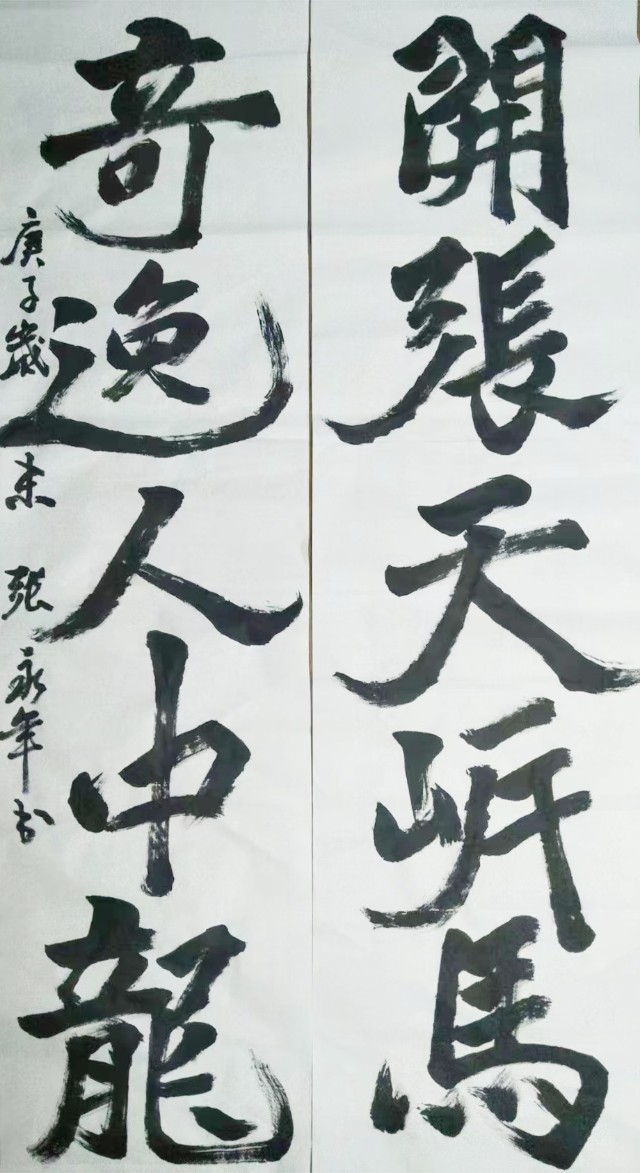 開張天岍馬
奇逸人中龍
庚子歲末 張永年书